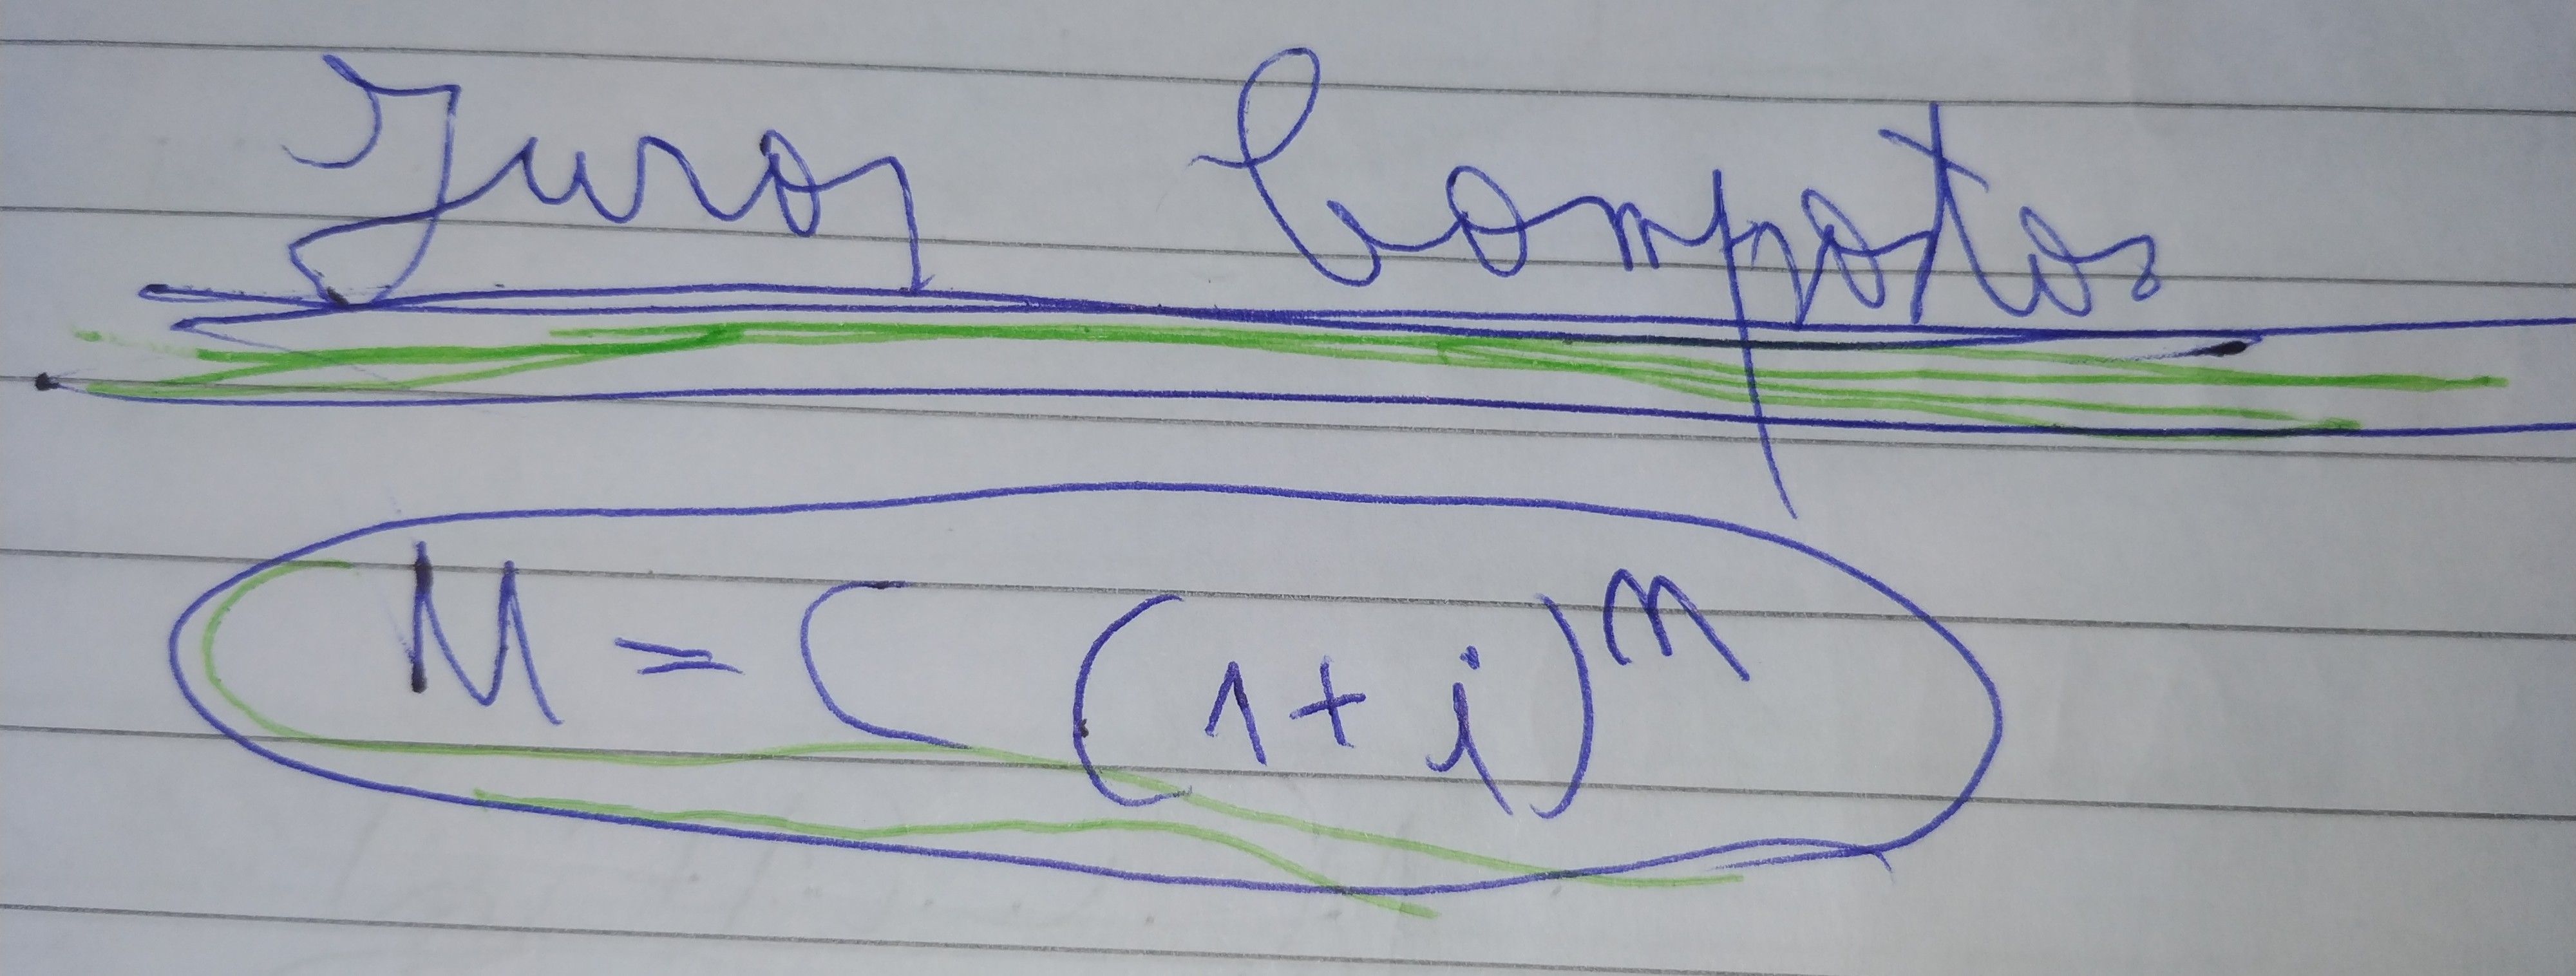 Juros Compostos
M = C (1 + i)^n